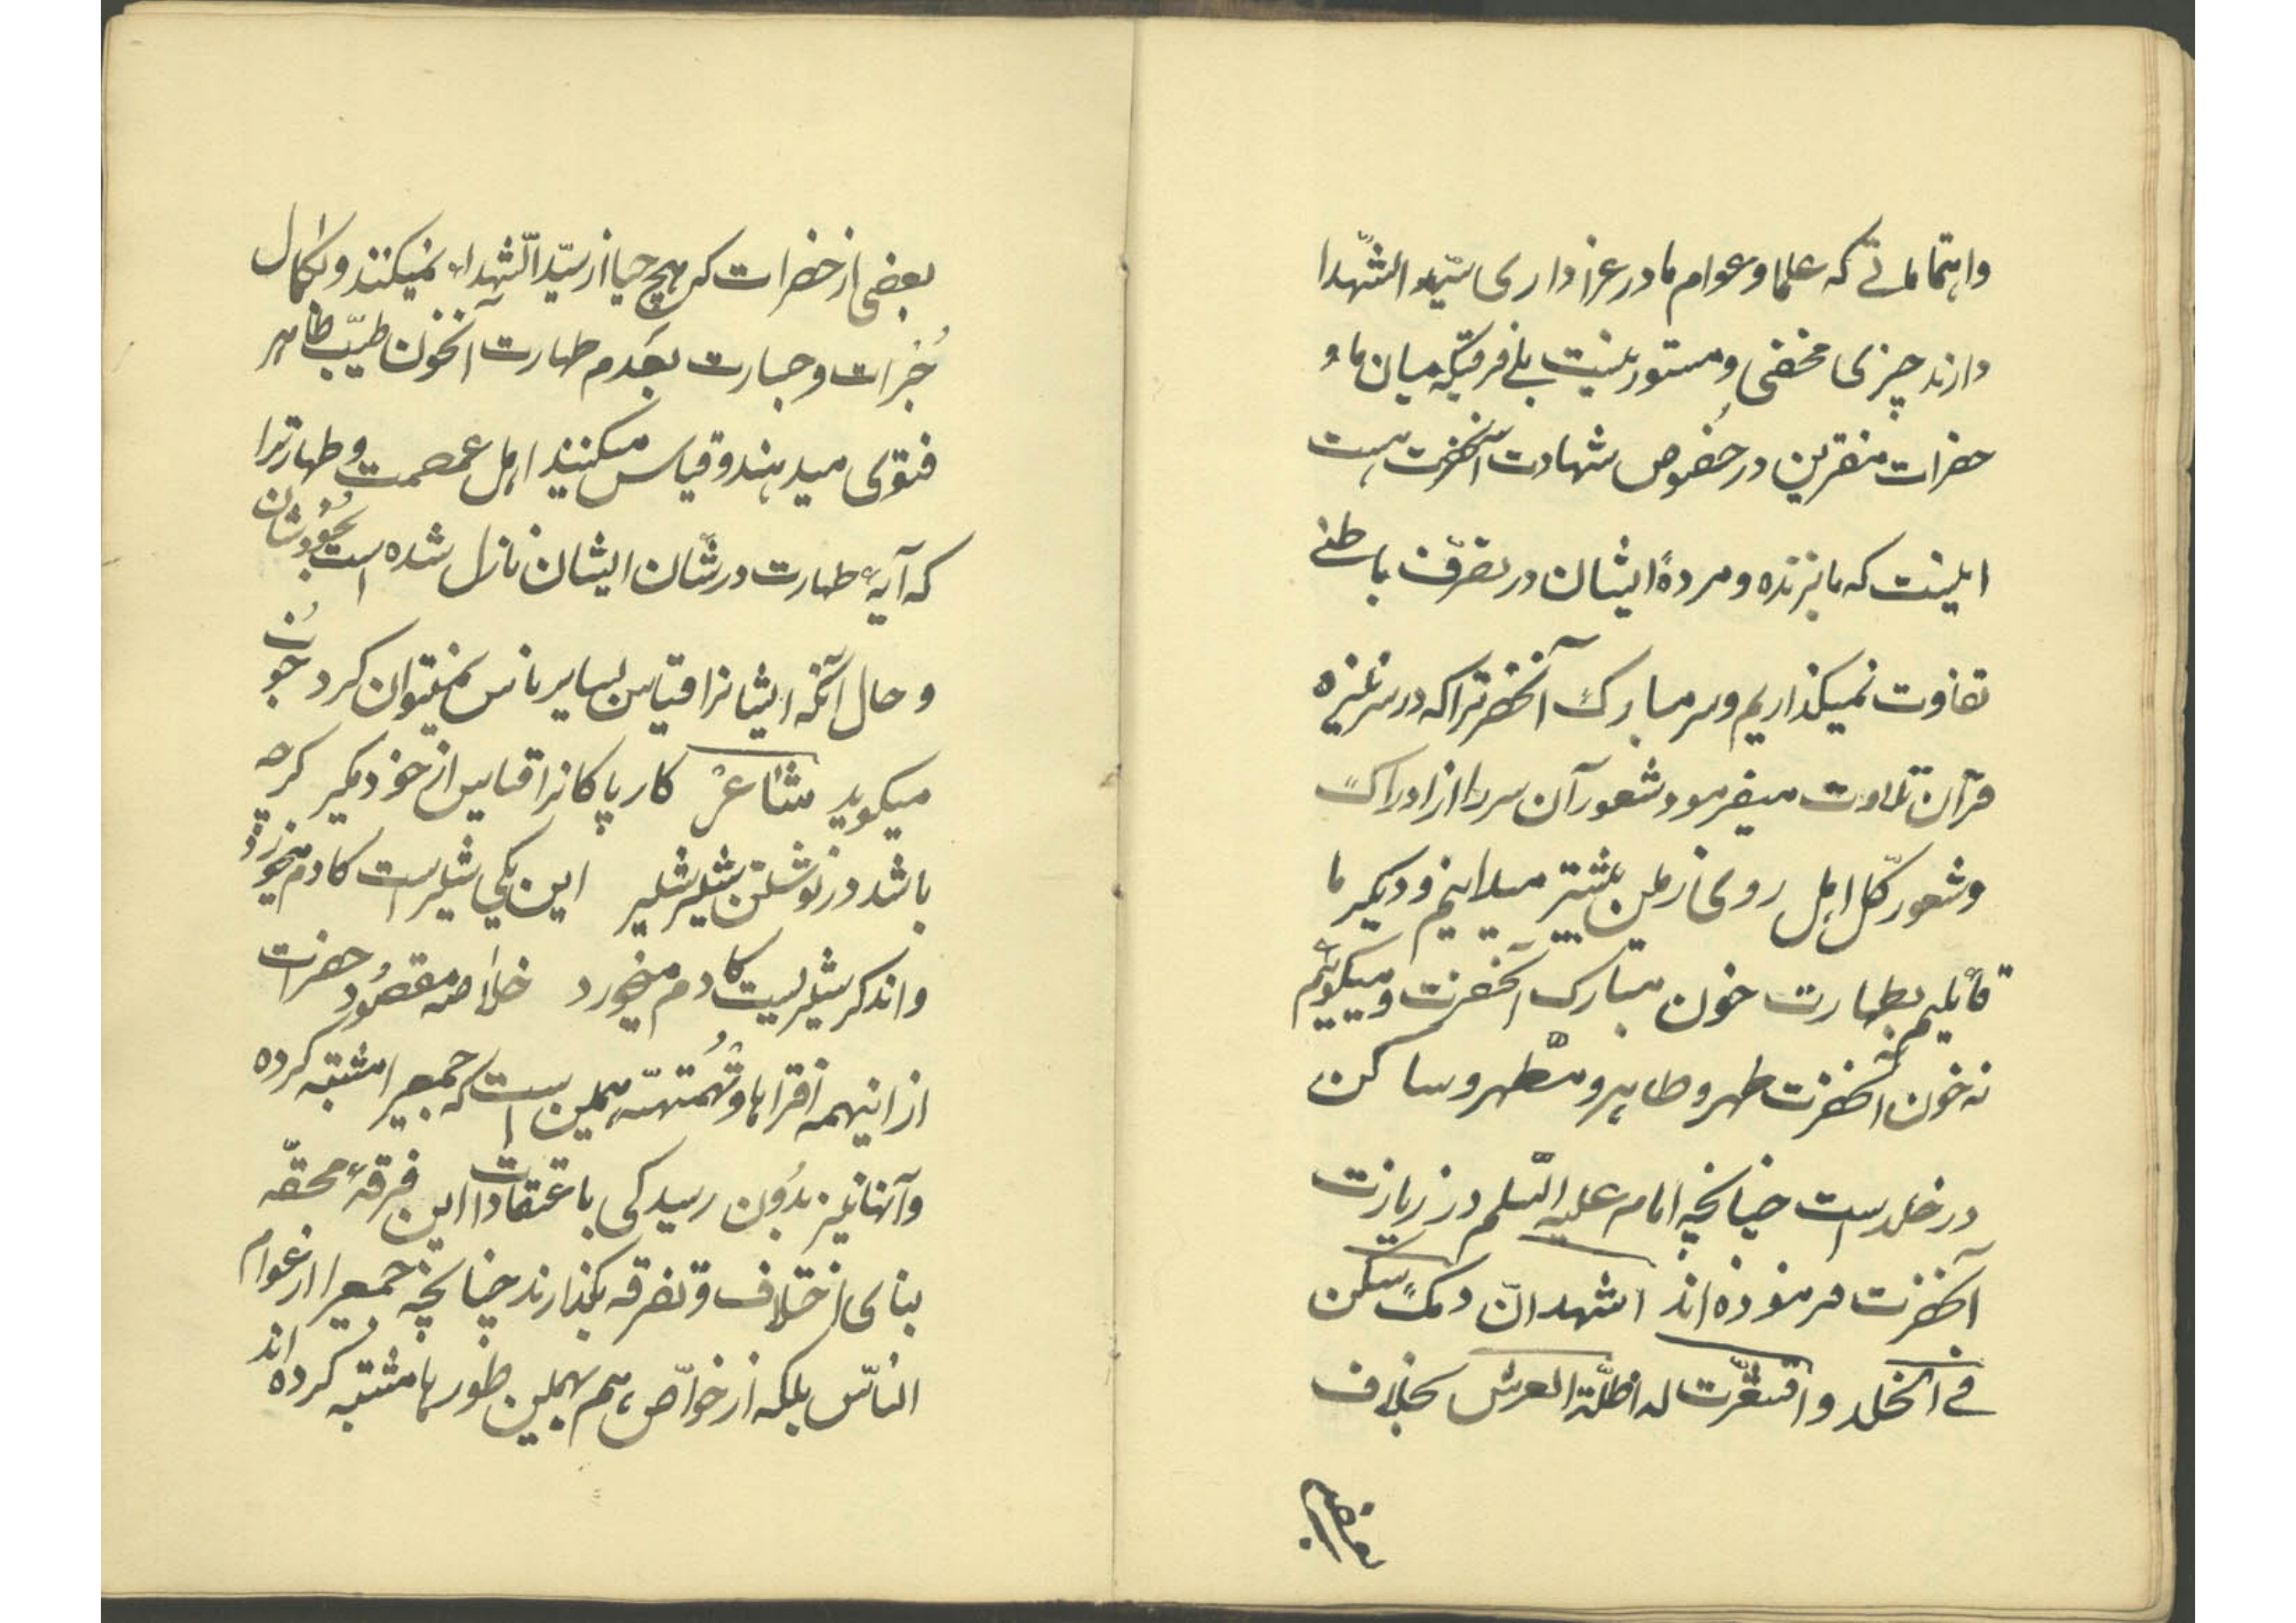 واهتماماتے که علما و عوام ما در عزاداری سیّد الشّهدا
دارند چیزی مخفی و مستور نیست بلے فرقیکه میان ما و
حضرات منقرین در خصوص شهادت آنحضرت هست
اینست که ما بزنده و مردهٔ ایشان در تصرّف باطنے
تفاوت نمیکذاریم و سر مبارک آنحضرترا که در سر نیزه
قرآن تلاوت میفرمود شعور آن سر را از ادراک
و شعور کلّ اهل روی زمین بیشتر میدانیم و دیکر ما
قائلیم بطهارت خون مبارک آنحضرت و میکوئیم
که خون آنحضرت طهر و طاهر و مطّهر و ساکن
در خلد است چنانچه امام علیه السّلم در زیارت
آنحضرت فرموده اند اشهد انّ دمک سکن
فے الخلد و اقشعرّت له اظلّة العرش بخلاف
بعضی
بعضی از حضرات که هیچ حیا از سیّد الشّهداء نمیکنند و بکمال
جُرات و جسارت بعدم طهارت آنخون طیّب طاهر
فتوی میدهند و قیاس میکنند اهل عصمت و طهارترا
که آیهٔ طهارت در شأن ایشان نازل شده است بخودشان
و حال آنکه ایشانرا قیاس بسایر ناس نمیتوان کرد چون
میکوید شاعر کار پاکانرا قیاس از خود مکیر کرچه
باشد در نوشتن شیر شیر این یکی شیراست کادم میخورد
واندکر شیریست کادم میخورد خلاصه مقصود حضرات
از اینهمه افتراها و تُهمتها همین است که جمعیرا مشتبه کرده
وآنها نیز بدون رسیدکی باعتقادات این فرقهٔ محقّه
بنای اختلاف و تفرقه بکذارند چنانچه جمعیرا از عوام
النّاس بلکه از خواصّ هم بهمین طورها مشتبه کرده اند